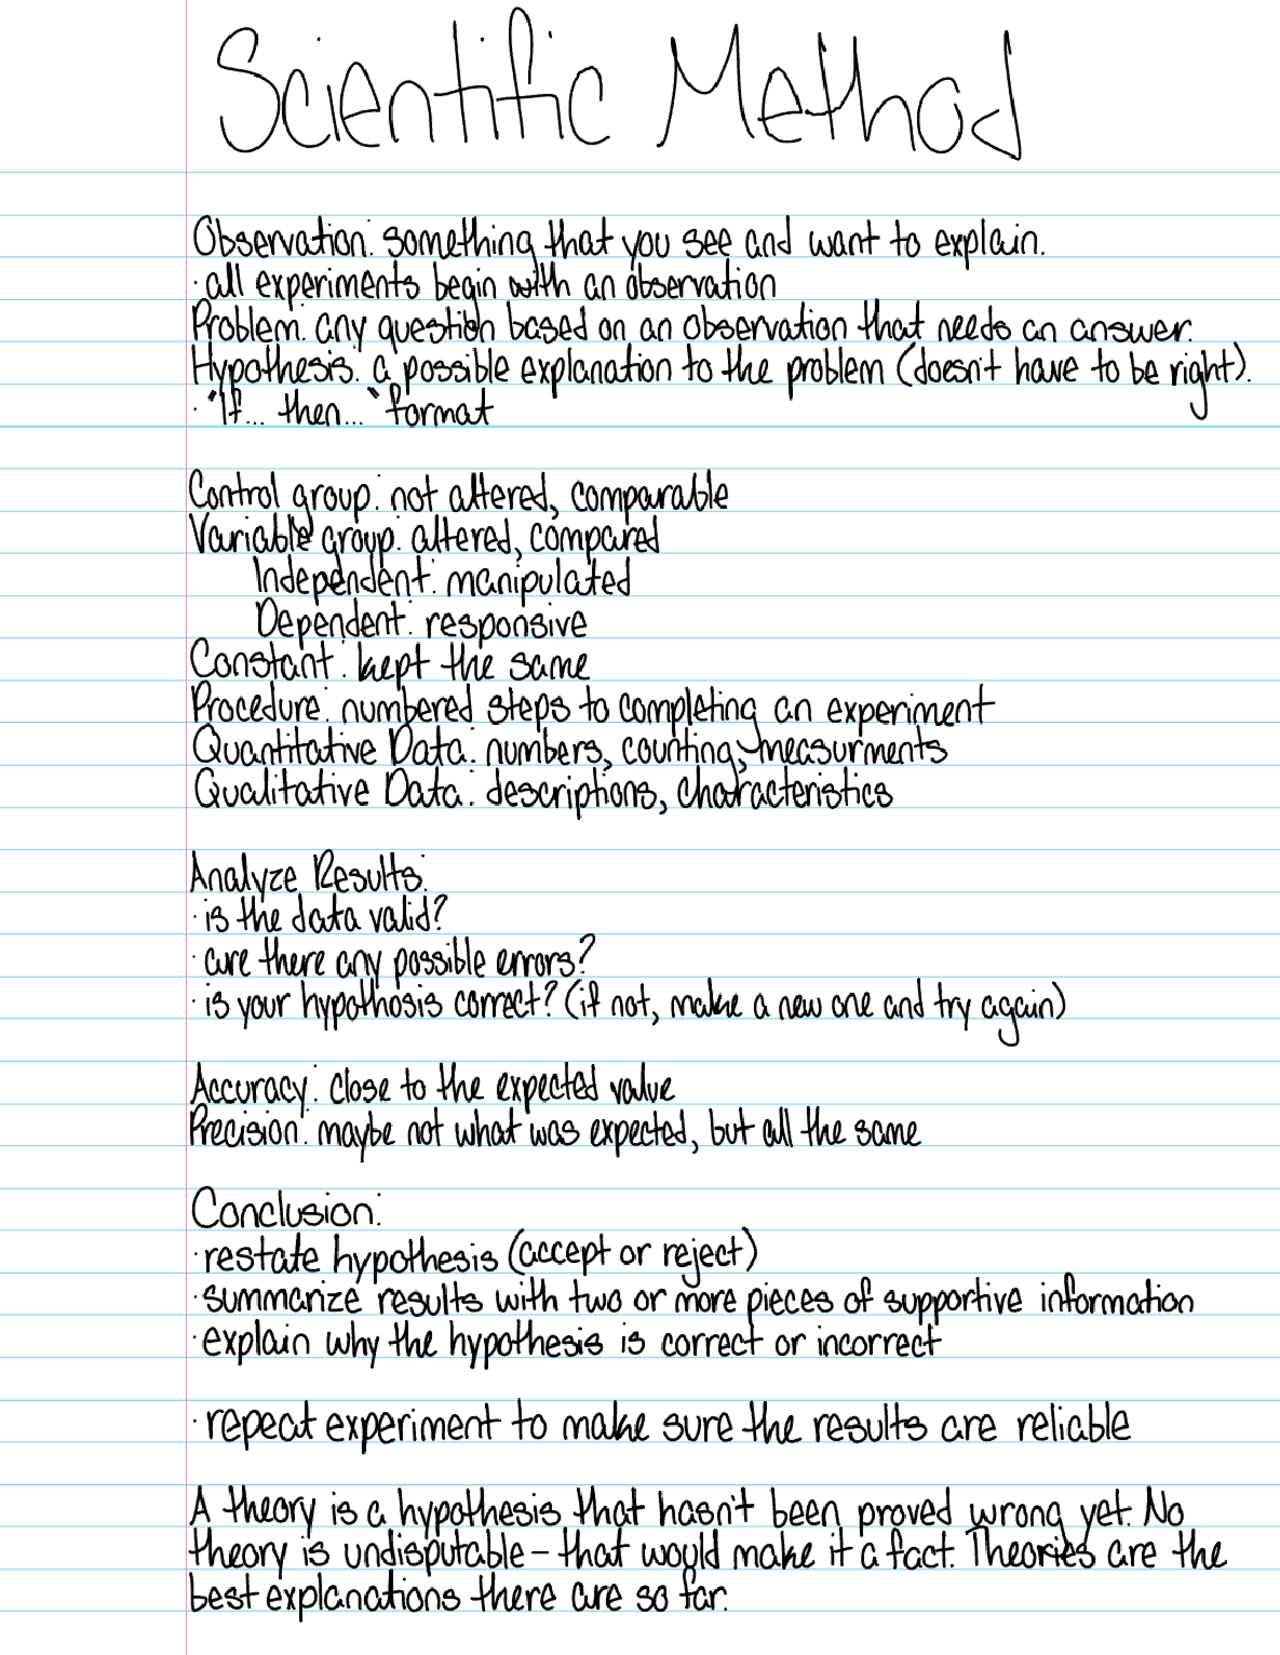 Scientific Method
Observation: something that you see and want to explain.
· all experiments begin with an observation
Problem: any question based on an observation that needs an answer.
Hypothesis: a possible explanation to the problem (doesn't have to be right).
· "If... then..." format
Control group: not altered, comparable
Variable group: altered, compared
Independent: manipulated
Dependent: responsive
Constant: kept the same
Procedure: numbered steps to completing an experiment
Quantitative Data: numbers, counting, measurments
Qualitative Data: descriptions, characteristics
Analyze Results:
· is the data valid?
· are there any possible errors?
· is your hypothosis correct? (if not, make a new one and try again)
Accuracy: close to the expected value
Precision: maybe not what was expected, but all the same
Conclusion:
· restate hypothesis (accept or reject)
· summarize results with two or more pieces of supportive information
· explain why the hypothesis is correct or incorrect
· repeat experiment to make sure the results are reliable
A theory is a hypothesis that hasn't been proved wrong yet. No
theory is undisputable - that would make it a fact. Theories are the
best explanations there are so far.